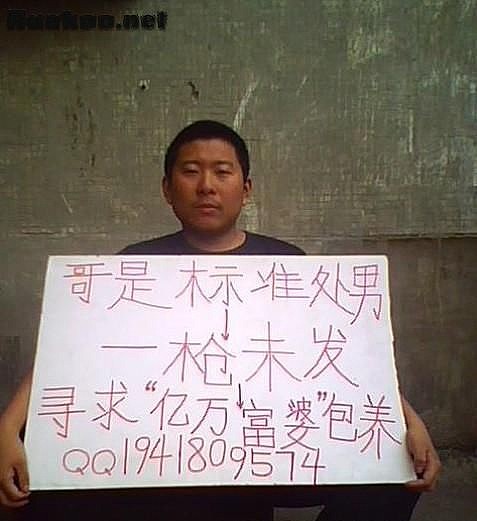 Huakoo.net
哥是标准处男
一枪未发
寻求“亿万富婆”包养
QQ1941809574